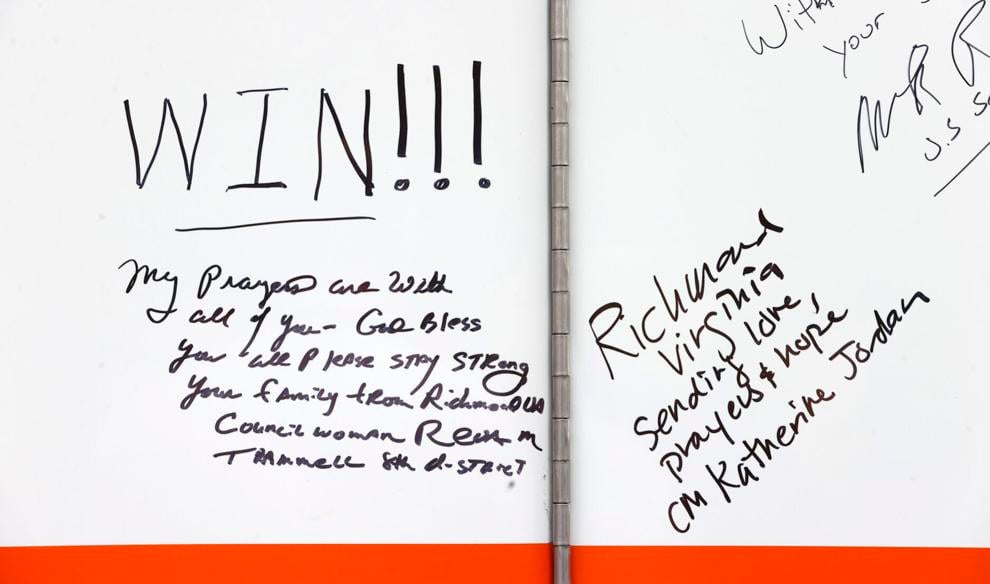 WIN!!!
My Prayers are With
all of you - God Bless
You all Please STAY STRONG
Your family from Richmond VA
Councilwoman Reva M
TRAMMELL 8th district
With
your
U.S
Richmond
Virginia
sending love,
prayers & hope
CM Katherine Jordan